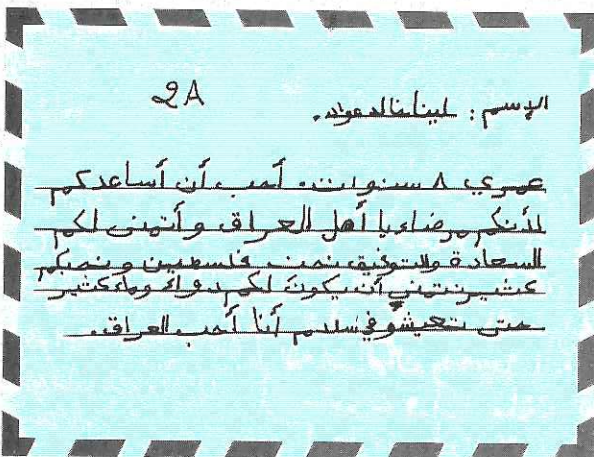 2A
الإسم : لينا خالد عواد.
عمري ٨ سنوات. أحب أن أساعدكم
لأنكم مرضاء يا أهل العراق وأتمنى لكم
السعادة والتوفيق نحن فلسطين ونحبكم
كثير نتمنى أن يكون لكم دواء وماء كثير
حتى تعيشو في سلام أنا أحب العراق.